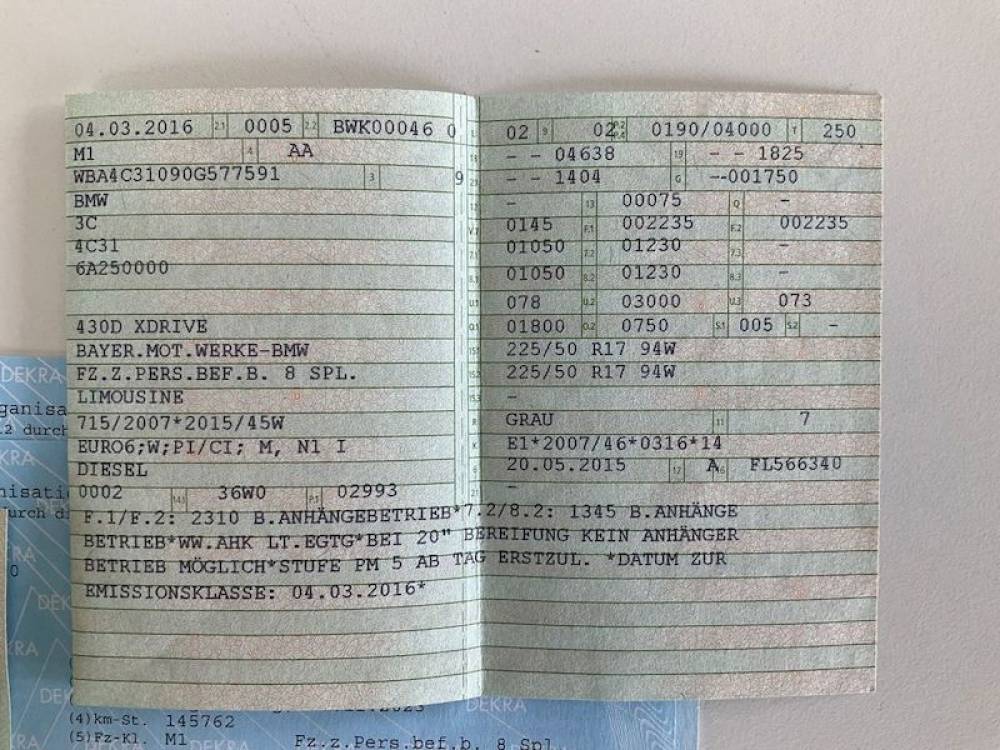 04.03.2016 2.1 0005 2.2 BWK00046 0
M1 4 AA
WBA4C31090G577591 3 9
BMW
3C
4C31
6A250000
430D XDRIVE
BAYER.MOT.WERKE-BMW
FZ.Z.PERS.BEF.B. 8 SPL.
LIMOUSINE
715/2007*2015/45W
EURO6;W;PI/CI; M, N1 I
DIESEL
0002 14.1 36W0 P.1 02993
L 02 9 02 P.2 P.4 0190/04000 T 250
18 - - 04638 19 - - 1825
20 - - 1404 G --001750
12 - 13 00075 Q -
V.7 0145 F.1 002235 F.2 002235
7.1 01050 7.2 01230 7.3 -
8.1 01050 8.2 01230 8.3 -
U.1 078 U.2 03000 U.3 073
O.1 01800 O.2 0750 S.1 005 S.2 -
15.1 225/50 R17 94W
15.2 225/50 R17 94W
15.3 -
R GRAU 11 7
K E1*2007/46*0316*14
6 20.05.2015 17 A 16 FL566340
21 -
F.1/F.2: 2310 B.ANHÄNGEBETRIEB*7.2/8.2: 1345 B.ANHÄNGE
BETRIEB*WW.AHK LT.EGTG*BEI 20" BEREIFUNG KEIN ANHÄNGER
BETRIEB MÖGLICH*STUFE PM 5 AB TAG ERSTZUL. *DATUM ZUR
EMISSIONSKLASSE: 04.03.2016*
DEKRA
ganisa
.2 durch
KRA
nisati
durch di
RA
0
DEK
KRA
DEK
DEKRA
(4)km-St. 145762
(5)Fz-Kl. M1 Fz.z.Pers.bef.b. 8 Spl